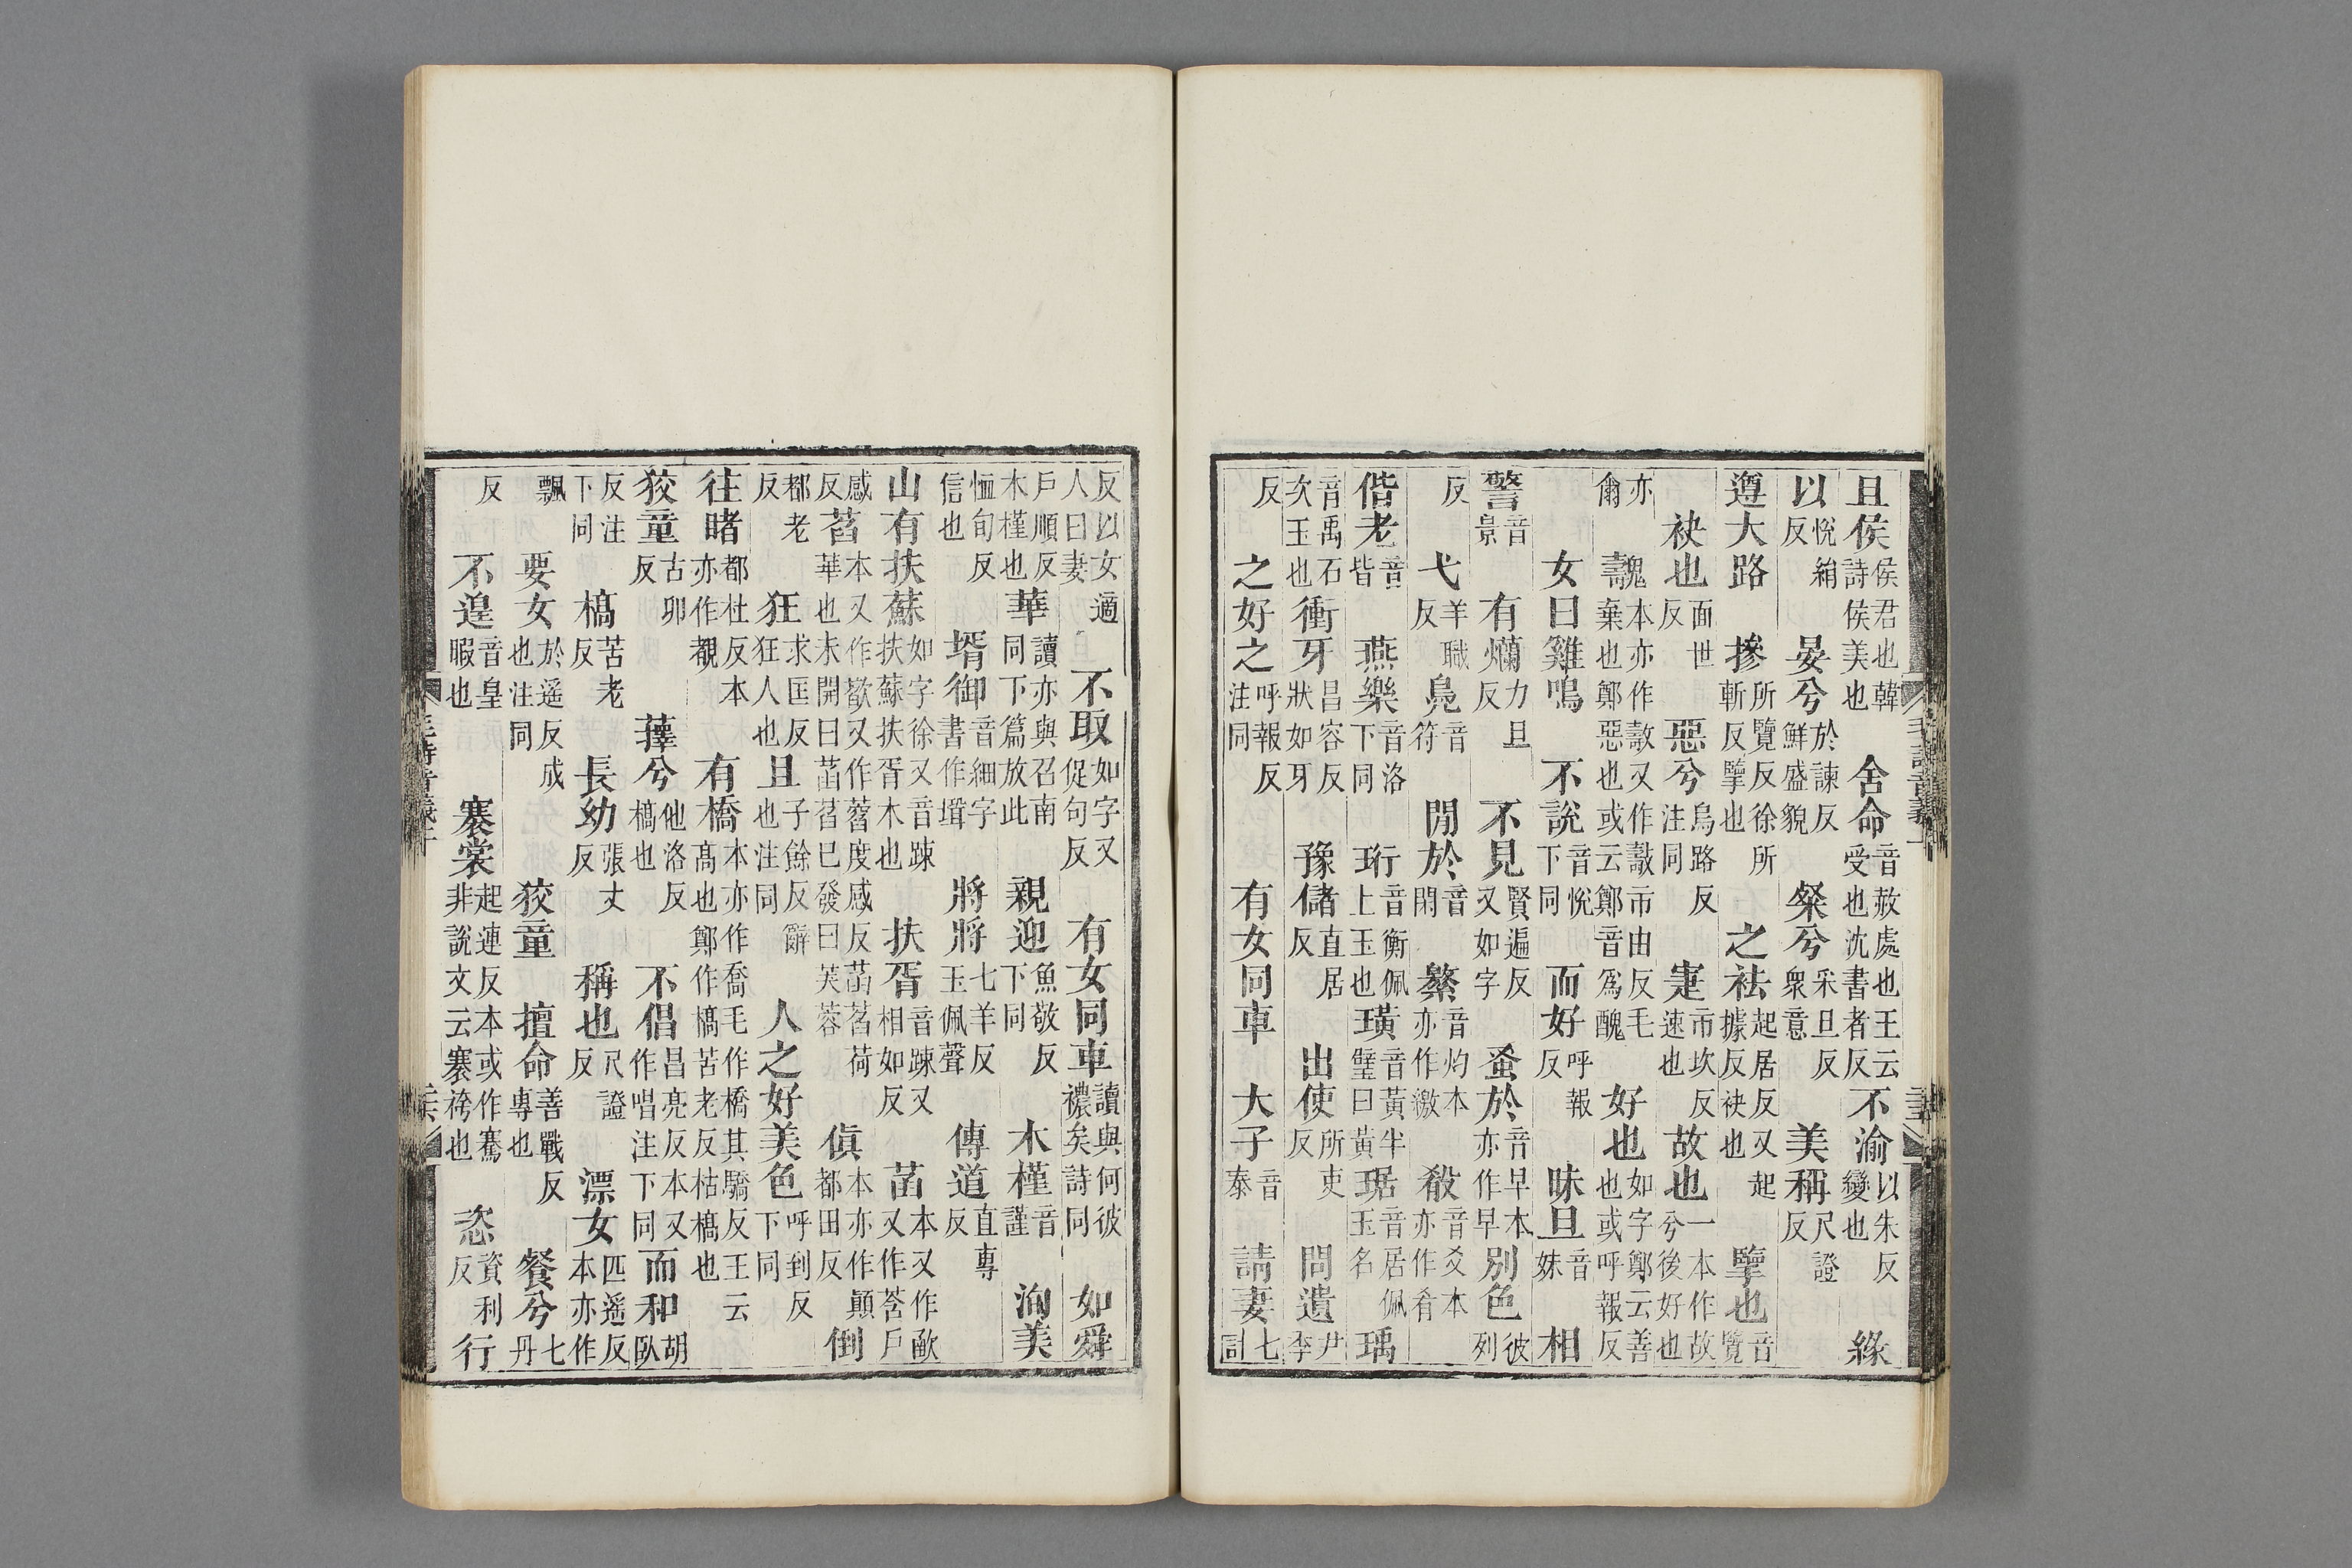 且侯侯君也韓詩侯美也舍命音赦處也王云受也沈書者反不渝以朱反變也緣
以悅絹反晏兮於諫反鮮盛貌粲兮采旦反衆意美稱尺證反
遵大路摻所覽反徐所斬反擥也之袪起居反又起據反袂也擥也音覽
袂也面世反惡兮烏路反注同寁市坎反速也故也一本作故兮後好也
亦爾魗本亦作㪒又作市由反毛棄也鄭惡也或云鄭音爲醜好也如字鄭云善也或呼報反
女曰雞鳴不說音悅下同而好呼報反昧旦音妹相
警音景有爛力旦反不見賢遍反又如字蚤於音早本亦作早別色彼列
反弋羊職反鳧音符閒於音閑繁音灼本亦作繳殽音爻本亦作肴
偕老音皆燕樂音洛下同珩音衡佩上玉也璜音黃半璧曰黃琚音居佩玉名瑀
音禹石次玉也衝牙昌容反狀如牙豫儲直居反出使所吏反問遺尹季
反之好之呼報反注同有女同車大子音泰請妻七計
毛詩音義上
反以女適人曰妻不取如字又促句反有女同車讀與何彼襛矣詩同如舜
戶順反木槿也華讀亦與召南同下篇放此親迎魚敬反下同木槿音謹洵美
恤旬反信也壻御音細字書作聓將將七羊反玉佩聲傳道直專反
山有扶蘇如字徐又音踈扶蘇扶胥木也扶胥音踈又相如反菡本又作歐又作莟戶
感反萏本又作歜又作蓞度感反菡萏荷華也未開曰菡萏已發曰芙蓉傎本亦作顛都田反倒
都老反狂求匡反狂人也且子餘反辭也注同人之好美色呼到反下同
往睹都杜反本亦作覩有橋本亦作喬毛作橋其驕反王云高也鄭作槁苦老反枯槁也
狡童古卯反蘀兮他洛反槁也不倡昌亮反本又作唱注下同而和胡臥
反注下同槁苦老反長幼張丈反稱也尺證反漂女匹遙反本亦作
飄要女於遙反成也注同狡童擅命善戰反專也餐兮七丹
反不遑音皇暇也褰裳起連反本或作騫非說文云褰袴也恣資利反行